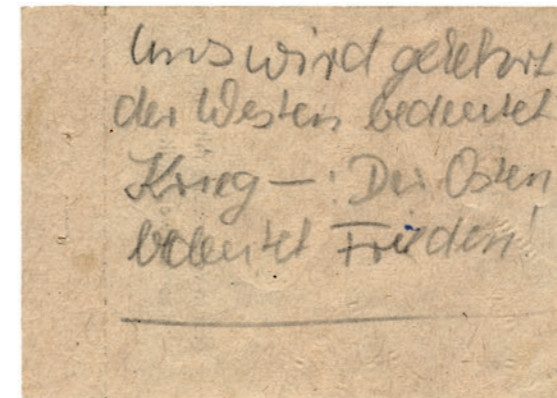 Uns wird gelehrt
der Westen bedeutet
Krieg — : Der Osten
bedeutet Frieden!